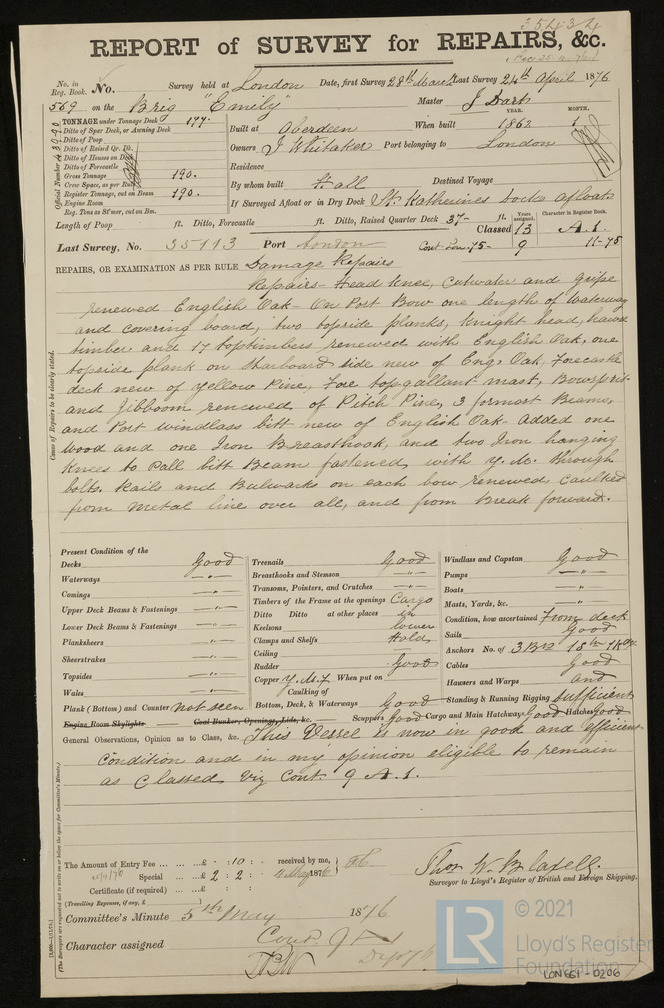 35434
REPORT of SURVEY for REPAIRS, &c.
No. in Reg. Book. No. Survey held at London Date, first Survey 28th March Last Survey 24th April 1876
569 on the Brig "Emily" Master J Dark
TONNAGE under Tonnage Deck 177 YEAR. MONTH.
Ditto of Spar Deck, or Awning Deck Built at Aberdeen When built 1862 1
Ditto of Poop
Ditto of Raised Qr. Dk. Owners J Whitaker Port belonging to London
Ditto of Houses on Deck
Ditto of Forecastle Residence
Gross Tonnage 190.
Crew Space, as per Rule By whom built Hall Destined Voyage
Register Tonnage, cut on Beam 190.
Engine Room If Surveyed Afloat or in Dry Dock St. Katherines Docks afloat
Reg. Tons as St'mer, cut on Bm.
Official Number 43990
Length of Poop ft. Ditto, Forecastle ft. Ditto, Raised Quarter Deck 37 ft. Classed Years assigned. 13 Character in Register Book. A.1.
Last Survey, No. 35113 Port London Cont Lon. 75- 9 11-75
REPAIRS, OR EXAMINATION AS PER RULE Damage Repairs
Repairs- Head knee, Cutwater and Gripe
renewed English Oak- On Port Bow one length of Waterway
and covering board, two topside planks, Knight head, hawse
timber and 17 toptimbers renewed with English Oak, one
topside plank on Starboard side new of Eng. Oak, Forecastle
deck new of Yellow Pine, Fore top-gallant-mast, Bowsprit-
and Jibboom renewed of Pitch Pine, 3 formost Beams,
and Port windlass bitt new of English Oak- added one
Wood and one Iron Breasthook, and two Iron hanging
Knees to Pall bitt Beam fastened with Y. M. through
bolts. Rails and Bulwarks on each bow renewed, Caulked
from metal line over all, and from Break forward.
Causes of Repairs to be clearly stated.
Present Condition of the
Decks Good
Waterways -"-
Comings -"-
Upper Deck Beams & Fastenings -"-
Lower Deck Beams & Fastenings -"-
Planksheers -"-
Sheerstrakes -"-
Topsides -"-
Wales -"-
Plank (Bottom) and Counter not seen
Engine Room Skylights Coal Bunker, Openings, Lids, &c.
Treenails Good
Breasthooks and Stemson -"-
Transoms, Pointers, and Crutches -"-
Timbers of the Frame at the openings Cargo
Ditto Ditto at other places in
Keelsons lower
Clamps and Shelfs Hold
Ceiling
Rudder Good
Copper Y.M.F When put on
Caulking of
Bottom, Deck, & Waterways Good
Scuppers Good Cargo and Main Hatchways Good Hatches Good
Windlass and Capstan Good
Pumps -"-
Boats -"-
Masts, Yards, &c. -"-
Condition, how ascertained From deck
Sails Good
Anchors No. of 3 Brs 1 Str 1 Kge
Cables Good
Hawsers and Warps and
Standing & Running Rigging Sufficient
General Observations, Opinion as to Class, &c. This Vessel is now in good and efficient
Condition and in my opinion eligible to remain
as Classed Viz Cont. 9 A.1.
The Amount of Entry Fee ... ... ...£ - : 10 : received by me,
Special ... ...£ 2 : 2 : 4 May 1876
Certificate (if required) ... ...£
(Travelling Expenses, if any, £ )
Thos W. Blaxell.
Surveyor to Lloyd's Register of British and Foreign Shipping.
Committee's Minute 5th May 1876
Character assigned Cont. 9 A 1
(The Surveyors are requested not to write on or below the space for Committee's Minute.)
© 2021
LR Lloyd's Register
Foundation
LON661-0206